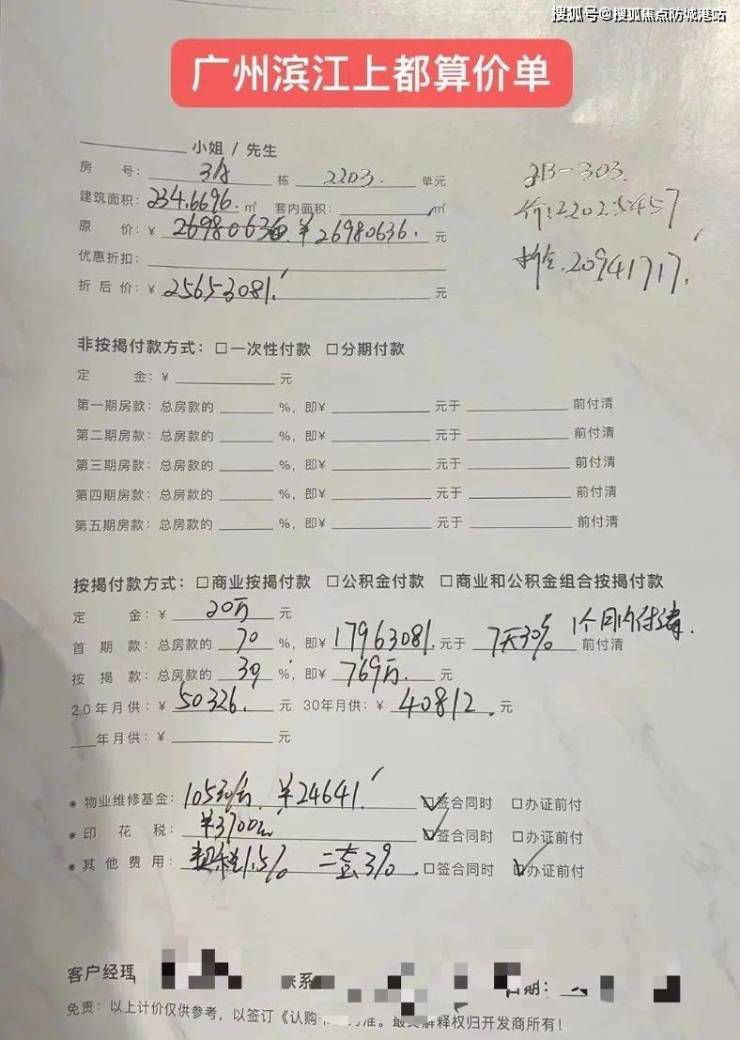 搜狐号@搜狐焦点防城港站
广州滨江上都算价单
小姐 / 先生
房 号: 3A 栋 2203. 单元
3B-303.
建筑面积: 234.6696. ㎡ 套内面积: ㎡
价:22025457
原 价: ¥ 26980636. ¥26980636. 元
优惠折扣:
折后价: ¥ 25653081. 元
20941717.
非按揭付款方式: □一次性付款 □分期付款
定 金: ¥ 元
第一期房款: 总房款的 %, 即¥ 元于 前付清
第二期房款: 总房款的 %, 即¥ 元于 前付清
第三期房款: 总房款的 %, 即¥ 元于 前付清
第四期房款: 总房款的 %, 即¥ 元于 前付清
第五期房款: 总房款的 %, 即¥ 元于 前付清
按揭付款方式: □商业按揭付款 □公积金付款 □商业和公积金组合按揭付款
定 金: ¥ 20万 元
首 期 款: 总房款的 70 %, 即¥ 17963081. 元于 7天30% 1个月内付清. 前付清
按 揭 款: 总房款的 30 %, 即¥ 769万. 元
20年月供: ¥ 50326. 元 30年月供: ¥ 40812. 元
年月供: ¥ 元
物业维修基金: ¥24641. □签合同时 □办证前付
印 花 税: ¥3700元 □签合同时 □办证前付
其 他 费 用: 契税1.5% 二套3%. □签合同时 □办证前付
客户经理 联系 日期:
免责: 以上计价仅供参考, 以签订《认购 准。最终解释权归开发商所有!